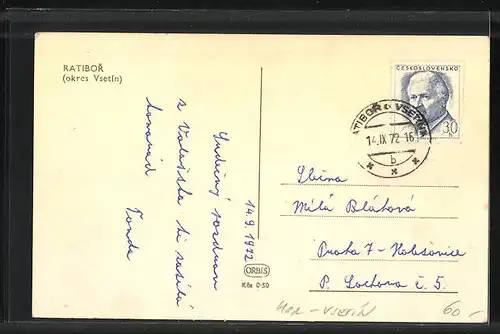 RATIBOŘ
(okres Vsetín)
14.9.1972
Srdečný pozdrav
z Valašska ti zasílá
kamarád
Vonda
ORBIS
Kčs 0·50
ČESKOSLOVENSKO
30 h
RATIBOŘ u VSETÍNA
14.IX 72-16
b
Sběra
Milá Bláhová
Praha 7 - Holešovice
P. Sochora č. 5.
HOR - VSETÍN
60,-